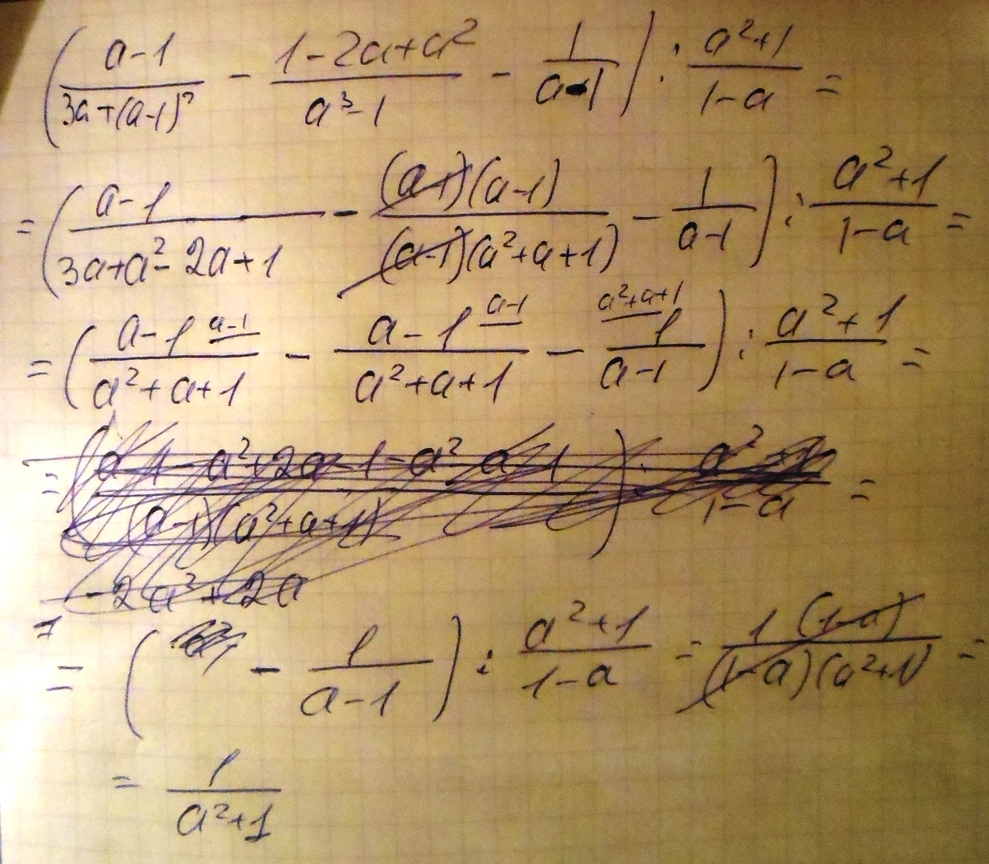 ((a-1)/(3a+(a-1)²) - (1-2a+a²)/(a³-1) - 1/(a-1)) : (a²+1)/(1-a) =
= ((a-1)/(3a+a²-2a+1) - ((a-1)(a-1))/((a-1)(a²+a+1)) - 1/(a-1)) : (a²+1)/(1-a) =
= ((a-1 a-1)/(a²+a+1) - (a-1 a-1)/(a²+a+1) - (a²+a+1 1)/(a-1)) : (a²+1)/(1-a) =
= ( /((a-1)(a²+a+1))) /(1-a) =
= -2a²+2a
= (- 1/(a-1)) : (a²+1)/(1-a) = (1(1-a))/((1-a)(a²+1)) =
= 1/(a²+1)